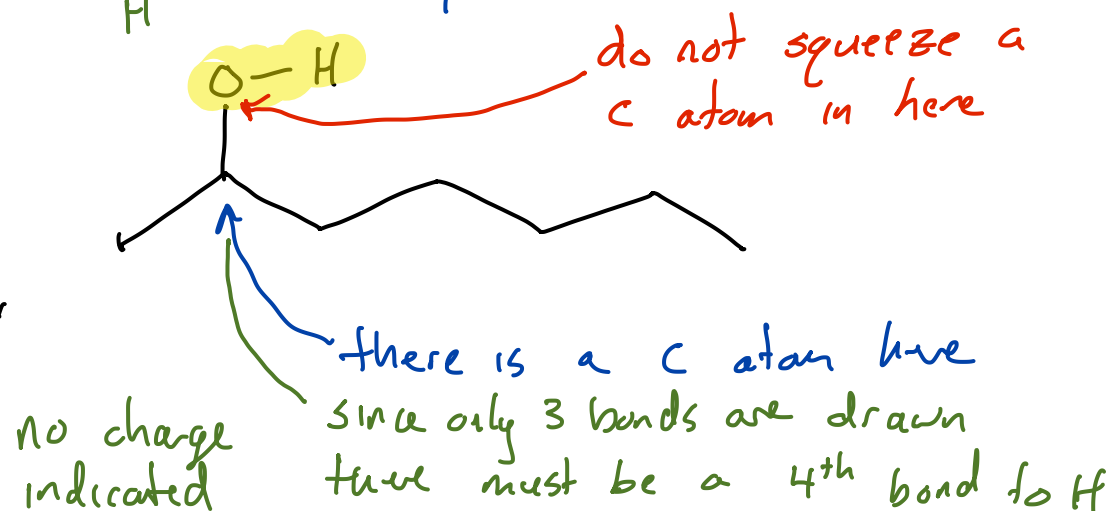 H
O - H
do not squeeze a
C atom in here
there is a C atom here
no charge
indicated
since only 3 bonds are drawn
there must be a 4th bond to H